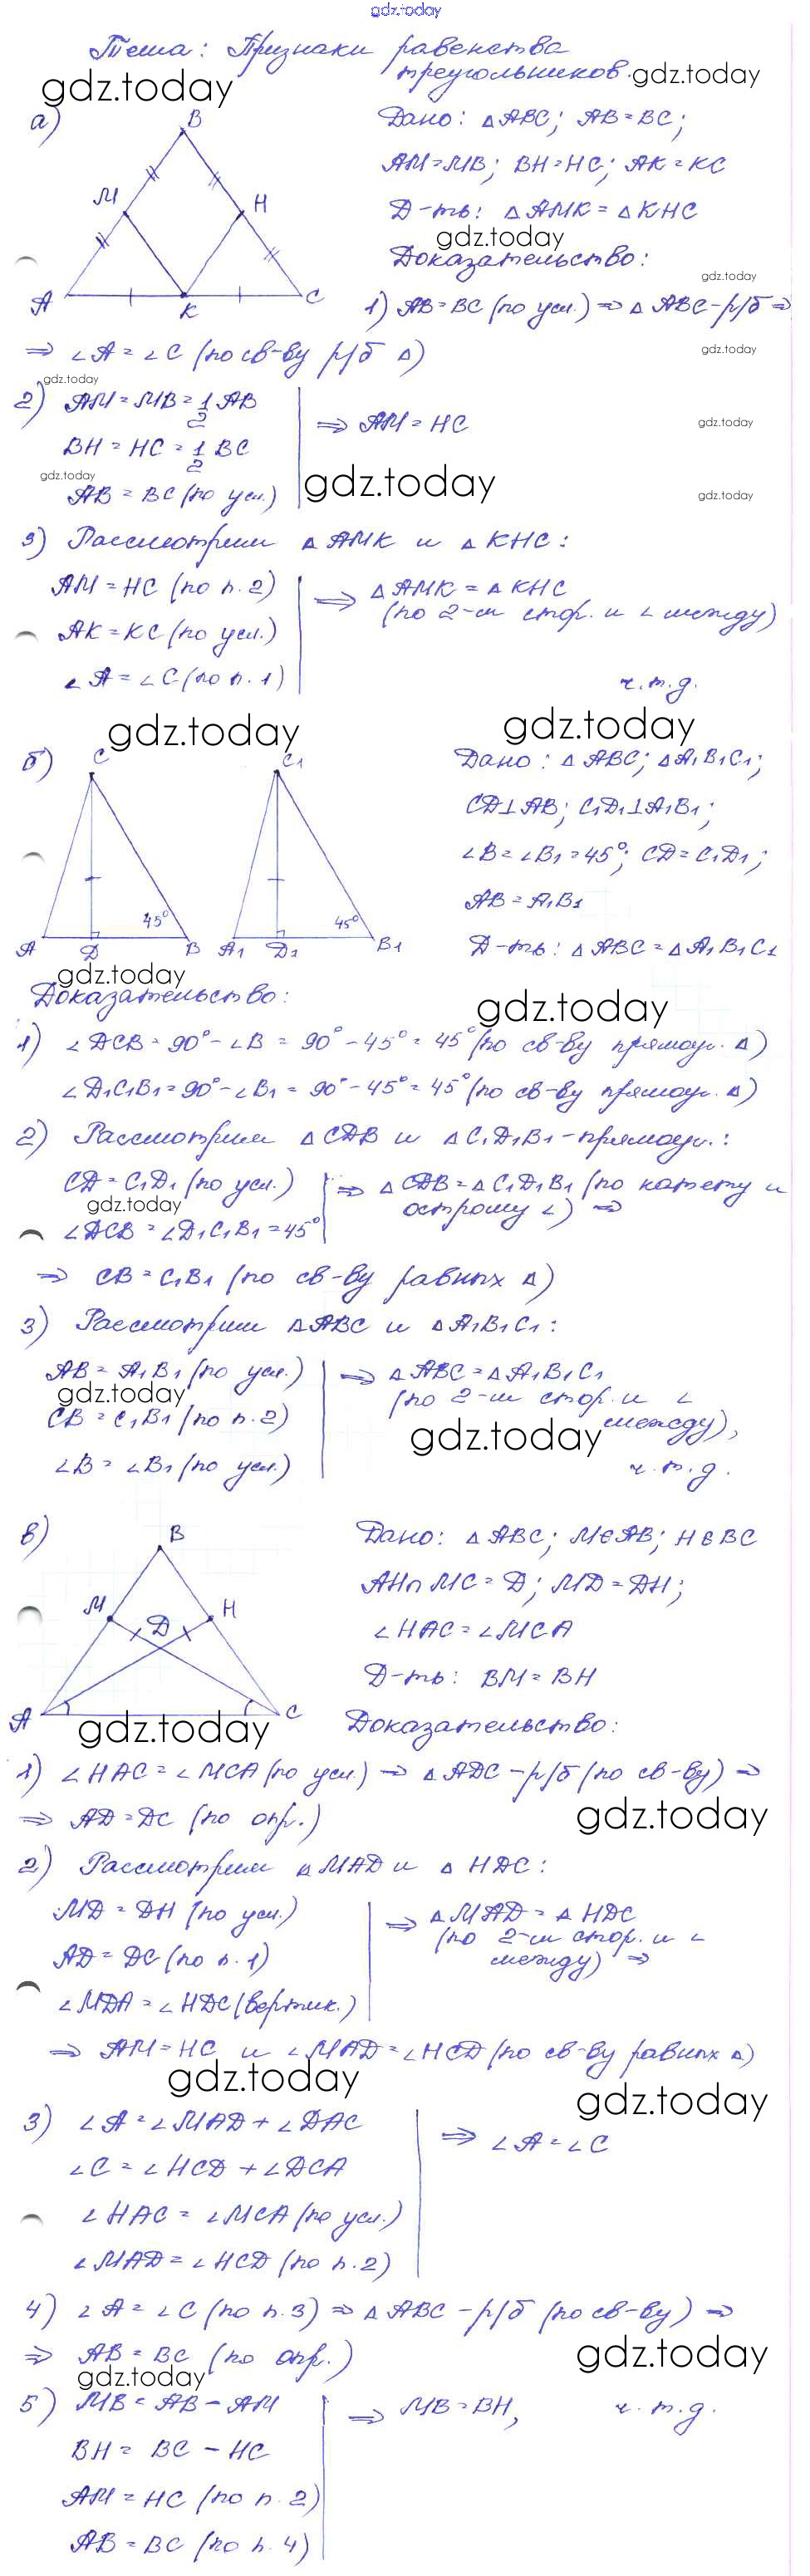 gdz.today
Тема: Признаки равенства
треугольников. gdz.today
gdz.today
а)
B
M
H
A
K
C
Дано: △ABC; AB = BC;
AM = MB; BH = HC; AK = KC
Д-ть: △AMK = △KHC
gdz.today
Доказательство:
gdz.today
1) AB = BC (по усл.) ⇒ △ABC - р/б ⇒
⇒ ∠A = ∠C (по св-ву р/б △)
gdz.today
gdz.today
2) AM = MB = 1/2 AB
BH = HC = 1/2 BC
AB = BC (по усл.)
⇒ AM = HC
gdz.today
gdz.today
gdz.today
gdz.today
3) Рассмотрим △AMK и △KHC:
AM = HC (по п. 2)
AK = KC (по усл.)
∠A = ∠C (по п. 1)
⇒ △AMK = △KHC
(по 2-м стор. и ∠ между)
ч.т.д.
gdz.today
gdz.today
б)
C
C₁
45°
45°
A
D
B
A₁
D₁
B₁
Дано: △ABC; △A₁B₁C₁;
CD⊥AB; C₁D₁⊥A₁B₁;
∠B = ∠B₁ = 45°; CD = C₁D₁;
AB = A₁B₁
Д-ть: △ABC = △A₁B₁C₁
gdz.today
Доказательство:
gdz.today
1) ∠DCB = 90° - ∠B = 90° - 45° = 45° (по св-ву прямоуг. △)
∠D₁C₁B₁ = 90° - ∠B₁ = 90° - 45° = 45° (по св-ву прямоуг. △)
2) Рассмотрим △CDB и △C₁D₁B₁ - прямоуг.:
CD = C₁D₁ (по усл.)
gdz.today
∠DCB = ∠D₁C₁B₁ = 45°
⇒ △CDB = △C₁D₁B₁ (по катету и
острому ∠) ⇒
⇒ CB = C₁B₁ (по св-ву равных △)
3) Рассмотрим △ABC и △A₁B₁C₁:
AB = A₁B₁ (по усл.)
gdz.today
CB = C₁B₁ (по п. 2)
∠B = ∠B₁ (по усл.)
⇒ △ABC = △A₁B₁C₁
(по 2-м стор. и ∠
между),
gdz.today
ч.т.д.
в)
B
M
D
H
A
C
Дано: △ABC; M∈AB; H∈BC
AH∩MC = D; MD = DH;
∠HAC = ∠MCA
Д-ть: BM = BH
gdz.today
Доказательство:
1) ∠HAC = ∠MCA (по усл.) ⇒ △ADC - р/б (по св-ву) ⇒
⇒ AD = DC (по опр.)
gdz.today
2) Рассмотрим △MAD и △HDC:
MD = DH (по усл.)
AD = DC (по п. 1)
∠MDA = ∠HDC (вертик.)
⇒ △MAD = △HDC
(по 2-м стор. и ∠
между) ⇒
⇒ AM = HC и ∠MAD = ∠HCD (по св-ву равных △)
gdz.today
gdz.today
3) ∠A = ∠MAD + ∠DAC
∠C = ∠HCD + ∠DCA
∠HAC = ∠MCA (по усл.)
∠MAD = ∠HCD (по п. 2)
⇒ ∠A = ∠C
4) ∠A = ∠C (по п. 3) ⇒ △ABC - р/б (по св-ву) ⇒
⇒ AB = BC (по опр.)
gdz.today
gdz.today
5) MB = AB - AM
BH = BC - HC
AM = HC (по п. 2)
AB = BC (по п. 4)
⇒ MB = BH,
ч.т.д.